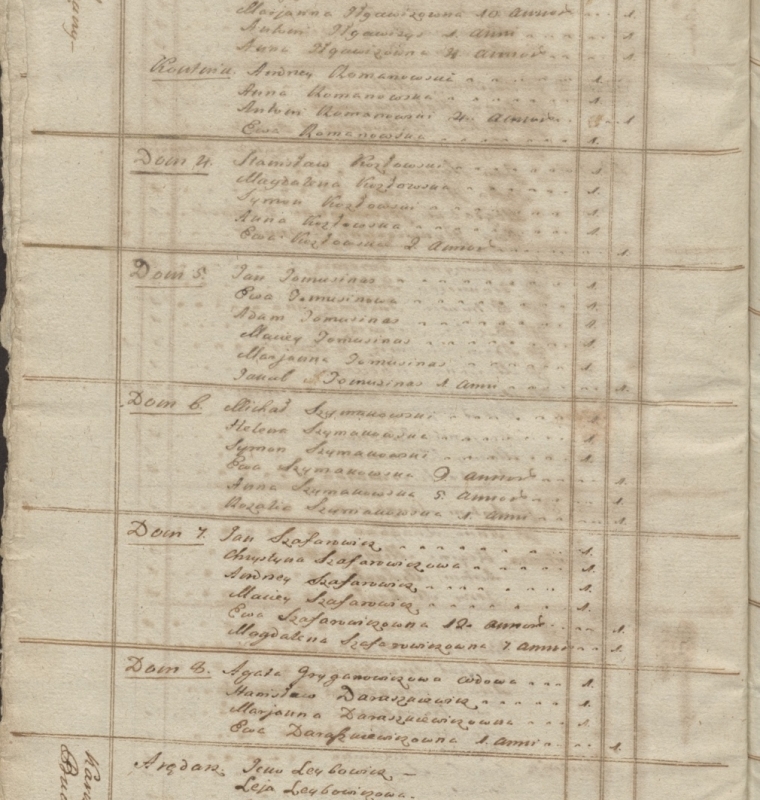 Marjanna Ilgawizowna 10 Annor. 1.
Antoni Ilgawizys 1 Anni 1.
Anna Ilgawizowna 4 Annor 1.
Andrzey Romanowski 1.
Anna Romanowska 1.
Antoni Romanowski 4. Annor 1.
Ewa Romanowska 1.
Dom 4. Stanisław Kozłowski 1.
Magdalena Kozłowska 1.
Symon Kozłowski 1.
Anna Kozłowska 1.
Ewa Kozłowska 2. Annor 1.
Dom 5. Jan Tomusinas 1.
Ewa Tomusinowa 1.
Adam Tomusinas 1.
Maciey Tomusinas 1.
Marjanna Tomusinas 1.
Jakub Tomusinas 1 Anni 1.
Dom 6. Michał Szymanowski 1.
Helena Szymanowska 1.
Symon Szymanowski 1.
Ewa Szymanowska 9 Annor 1.
Anna Szymanowska 5. Annor 1.
Rozalia Szymanowska 1 Anni 1.
Dom 7. Jan Szafarowicz 1.
Chrystyna Szafarowiczowa 1.
Andrzey Szafarowicz 1.
Maciey Szafarowicz 1.
Ewa Szafarowiczowna 12. Annor 1.
Magdalena Szafarowiczowna 7 Annor 1.
Dom 8. Agata Gryganowiczowa wdowa 1.
Stanisław Daraszkiewicz 1.
Marjanna Daraszkiewiczowna 1.
Ewa Daraszkiewiczowna 1 Anni 1.
Arędarz. Leybowicz
Leja Leybowiczowa.